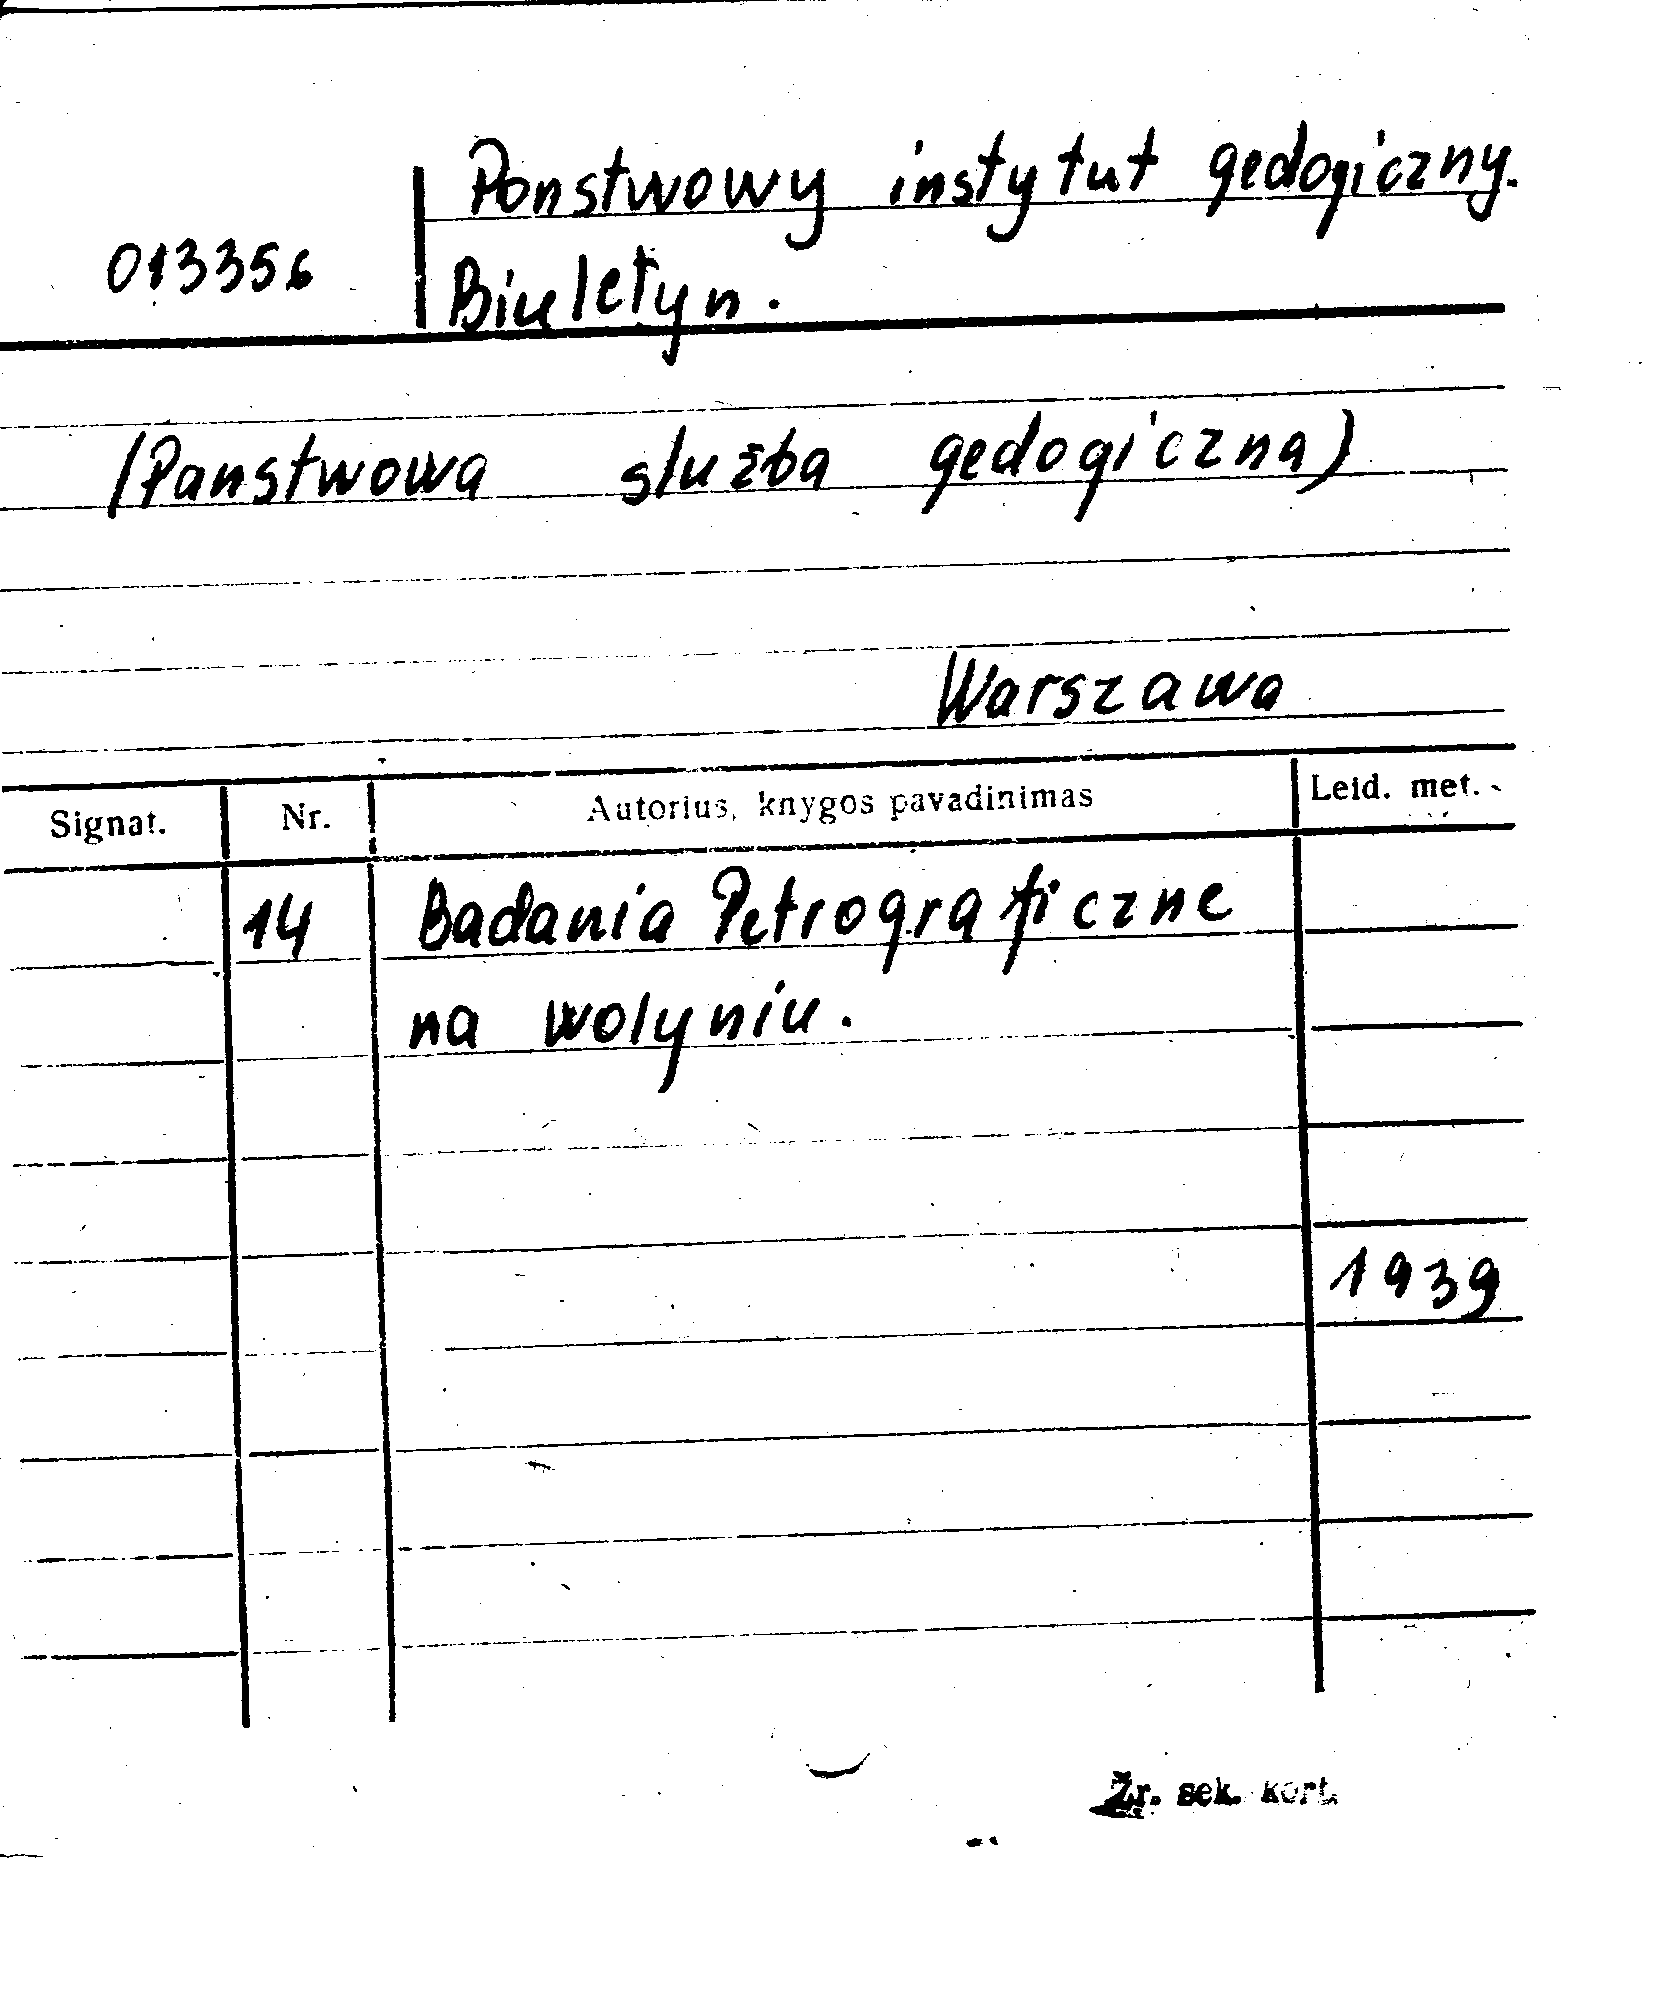 Ponstwowy instytut geologiczny.
013356
Biuletyn.
(Panstwowa służba geologiczna)
Warszawa
Signat. Nr. Autorius, knygos pavadinimas Leid. met.
14 Badania Petrograficzne
na wolyniu.
1939
Žr. sek. kort.